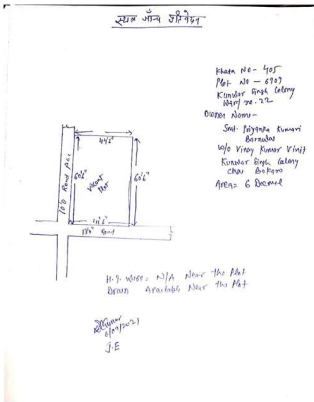 स्थल जाँच प्रतिवेदन
Khata No- 405
Plot No - 6909
Kunwar Singh Colony
Ward no. 22
Owner Name-
Smt. Priyanka Kumari
Baranwal
W/o Vinay Kumar Vinit
Kunwar Singh Colony
Chas Bokaro
Area= 6 Decimal
44'6"
60'6"
Vacant
Plot
60'6"
10'0 Road P.C.C
Road
H.T. Wire = N/A Near the Plot
Drain Available Near the Plot
2021
J.E